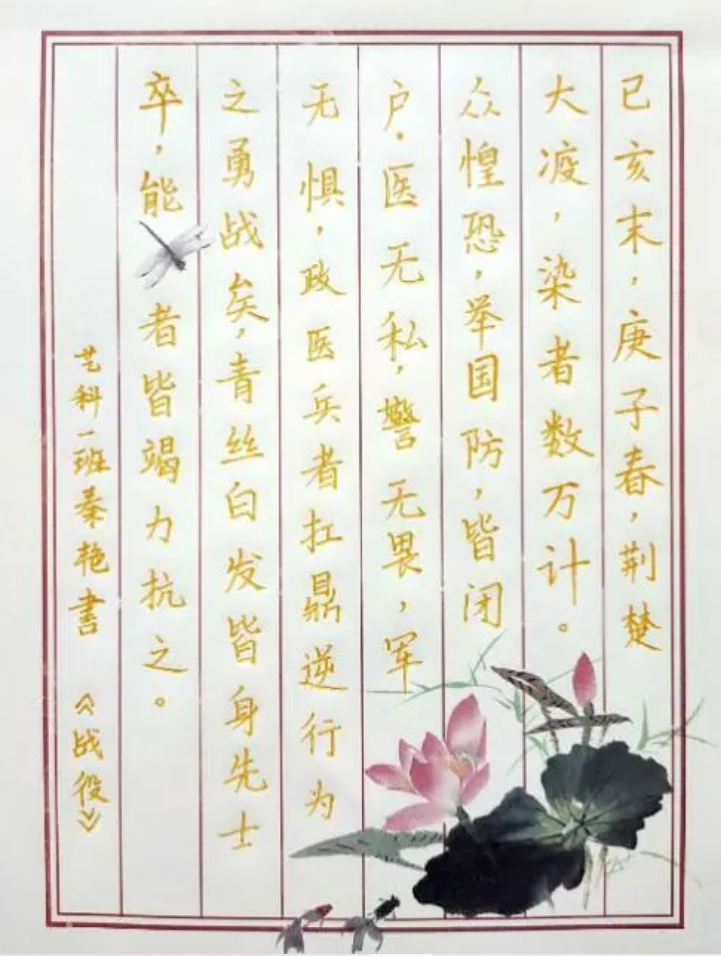 己亥末，庚子春，荆楚
大疫，染者数万计。
众惶恐，举国防，皆闭
户。医无私，警无畏，军
无惧，政医兵者扛鼎逆行为
之勇战矣，青丝白发皆身先士
卒，能者皆竭力抗之。
艺科一班秦艳書《战役》